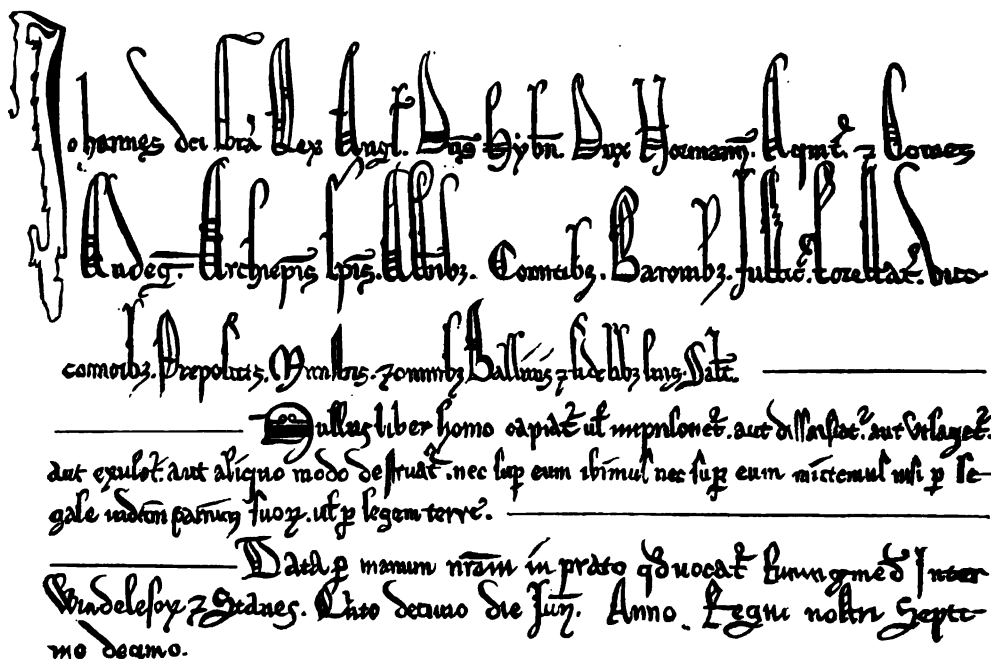 Johannes dei Gra Rex Angl. Dns Hybn. Dux Normann. Aquit. ⁊ Comes
Andeg. Archiepis Epis. Abbibz. Comitibz. Baronibz. Justic. Forestar. vice
comitibz. Prepositis. Ministris. ⁊ omnibz Ballivis ⁊ fidelibz suis. Salt.
Nullus liber homo capiat ul imprisonet. aut dissaisiat. aut Utlaget.
aut exulet. aut aliquo modo destruat. nec sup eum ibimus nec sup eum mittemus nisi p le-
gale judicm parium suor. ul p legem terre.
Data p manum nram in prato qd vocat Runingmed Inter
Windelesor ⁊ Stanes. Quinto decimo die Jun. Anno. Regni nostri Septi-
mo decimo.